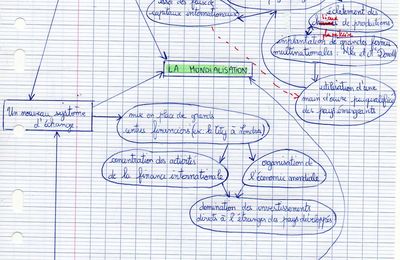 essor des flux de
capitaux internationaux
éclatement des
de production
implantation de grandes firmes
multinationales:
LA MONDIALISATION
utilisation d'une
main d'œuvre peu qualifiée
des pays émigrants
Un nouveau système
d'échange
mise en place de grands
centres financiers (ex: la City à Londres)
concentration des activités
de la finance internationale
organisation de
l'économie mondiale
domination des investissements
directs à l'étranger des pays développés